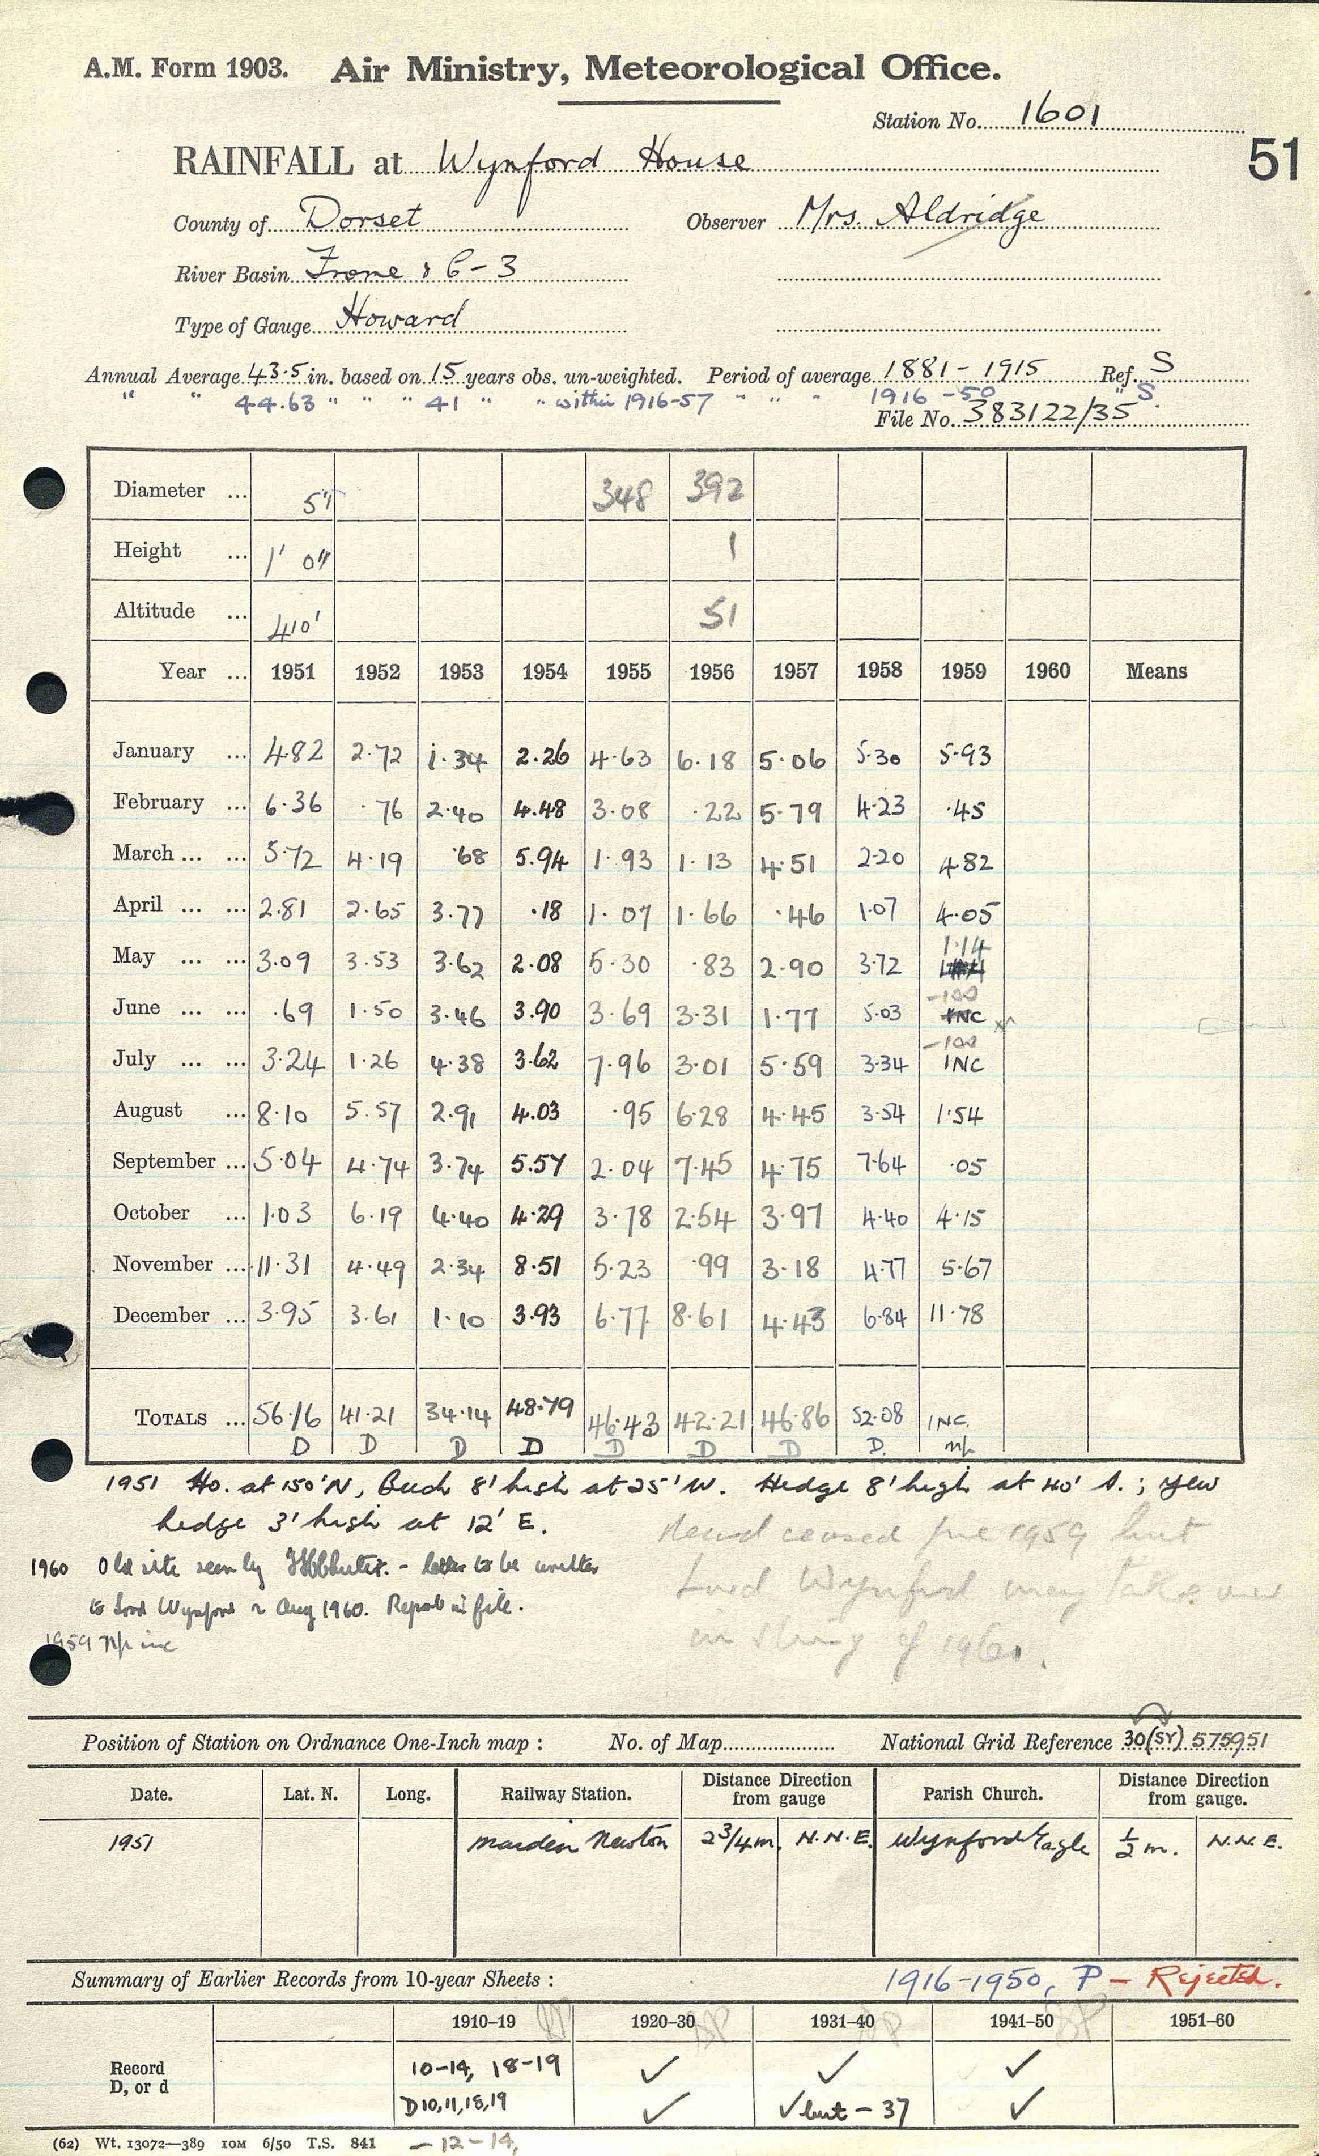 A.M. Form 1903. Air Ministry, Meteorological Office.
Station No. 1601
51
RAINFALL at Wynford House
County of Dorset Observer Mrs. Aldridge
River Basin Frome & C-3
Type of Gauge Howard
Annual Average 43.5 in. based on 15 years obs. un-weighted. Period of average 1881-1915 Ref. S
" " 44.63 " " " 41 " " within 1916-57 " " " 1916-50 " S.
File No. 383122/35
Diameter ... 5" 348 392
Height ... 1' 0" 1
Altitude ... 410' 51
Year ... 1951 1952 1953 1954 1955 1956 1957 1958 1959 1960 Means
January ... 4.82 2.72 1.34 2.26 4.63 6.18 5.06 5.30 5.93
February ... 6.36 .76 2.40 4.48 3.08 .22 5.79 4.23 .45
March ... ... 5.72 4.19 .68 5.94 1.93 1.13 4.51 2.20 4.82
April ... ... 2.81 2.65 3.77 .18 1.07 1.66 .46 1.07 4.05
May ... ... 3.09 3.53 3.62 2.08 5.30 .83 2.90 3.72 1.14
June ... ... .69 1.50 3.46 3.90 3.69 3.31 1.77 5.03 -100 INC
July ... ... 3.24 1.26 4.38 3.62 7.96 3.01 5.59 3.34 -100 INC
August ... 8.10 5.57 2.91 4.03 .95 6.28 4.45 3.54 1.54
September ... 5.04 4.74 3.74 5.57 2.04 7.45 4.75 7.64 .05
October ... 1.03 6.19 4.40 4.29 3.78 2.54 3.97 4.40 4.15
November ... 11.31 4.49 2.34 8.51 5.23 .99 3.18 4.77 5.67
December ... 3.95 3.61 1.10 3.93 6.77 8.61 4.43 6.84 11.78
TOTALS ... 56.16 41.21 34.14 48.79 46.43 42.21 46.86 52.08 INC.
D D D D D D D D.
1951 Ho. at 150' N, 8' high at 25' W. Hedge 8' high at 40' S.; Yew
hedge 3' high at 12' E.
ceased 1959 but
Lord Wynford may take over
in of 1960.
1960 Old site seen by - letter to be written
to Lord Wynford Aug 1960. Report in file.
1959 inc
Position of Station on Ordnance One-Inch map : No. of Map National Grid Reference 30(SY) 575951
Date. Lat. N. Long. Railway Station. Distance Direction from gauge Parish Church. Distance Direction from gauge.
1951 Maiden Newton 2 3/4 m. N.N.E. Wynford Eagle 1/2 m. N.N.E.
Summary of Earlier Records from 10-year Sheets : 1916-1950, P - Rejected.
1910-19 1920-30 1931-40 1941-50 1951-60
Record 10-14, 18-19 ✓ ✓ ✓
D, or d D10,11,18,19 ✓ ✓ but - 37 ✓
(62) Wt. 13072—389 10M 6/50 T.S. 841 - 12-14,